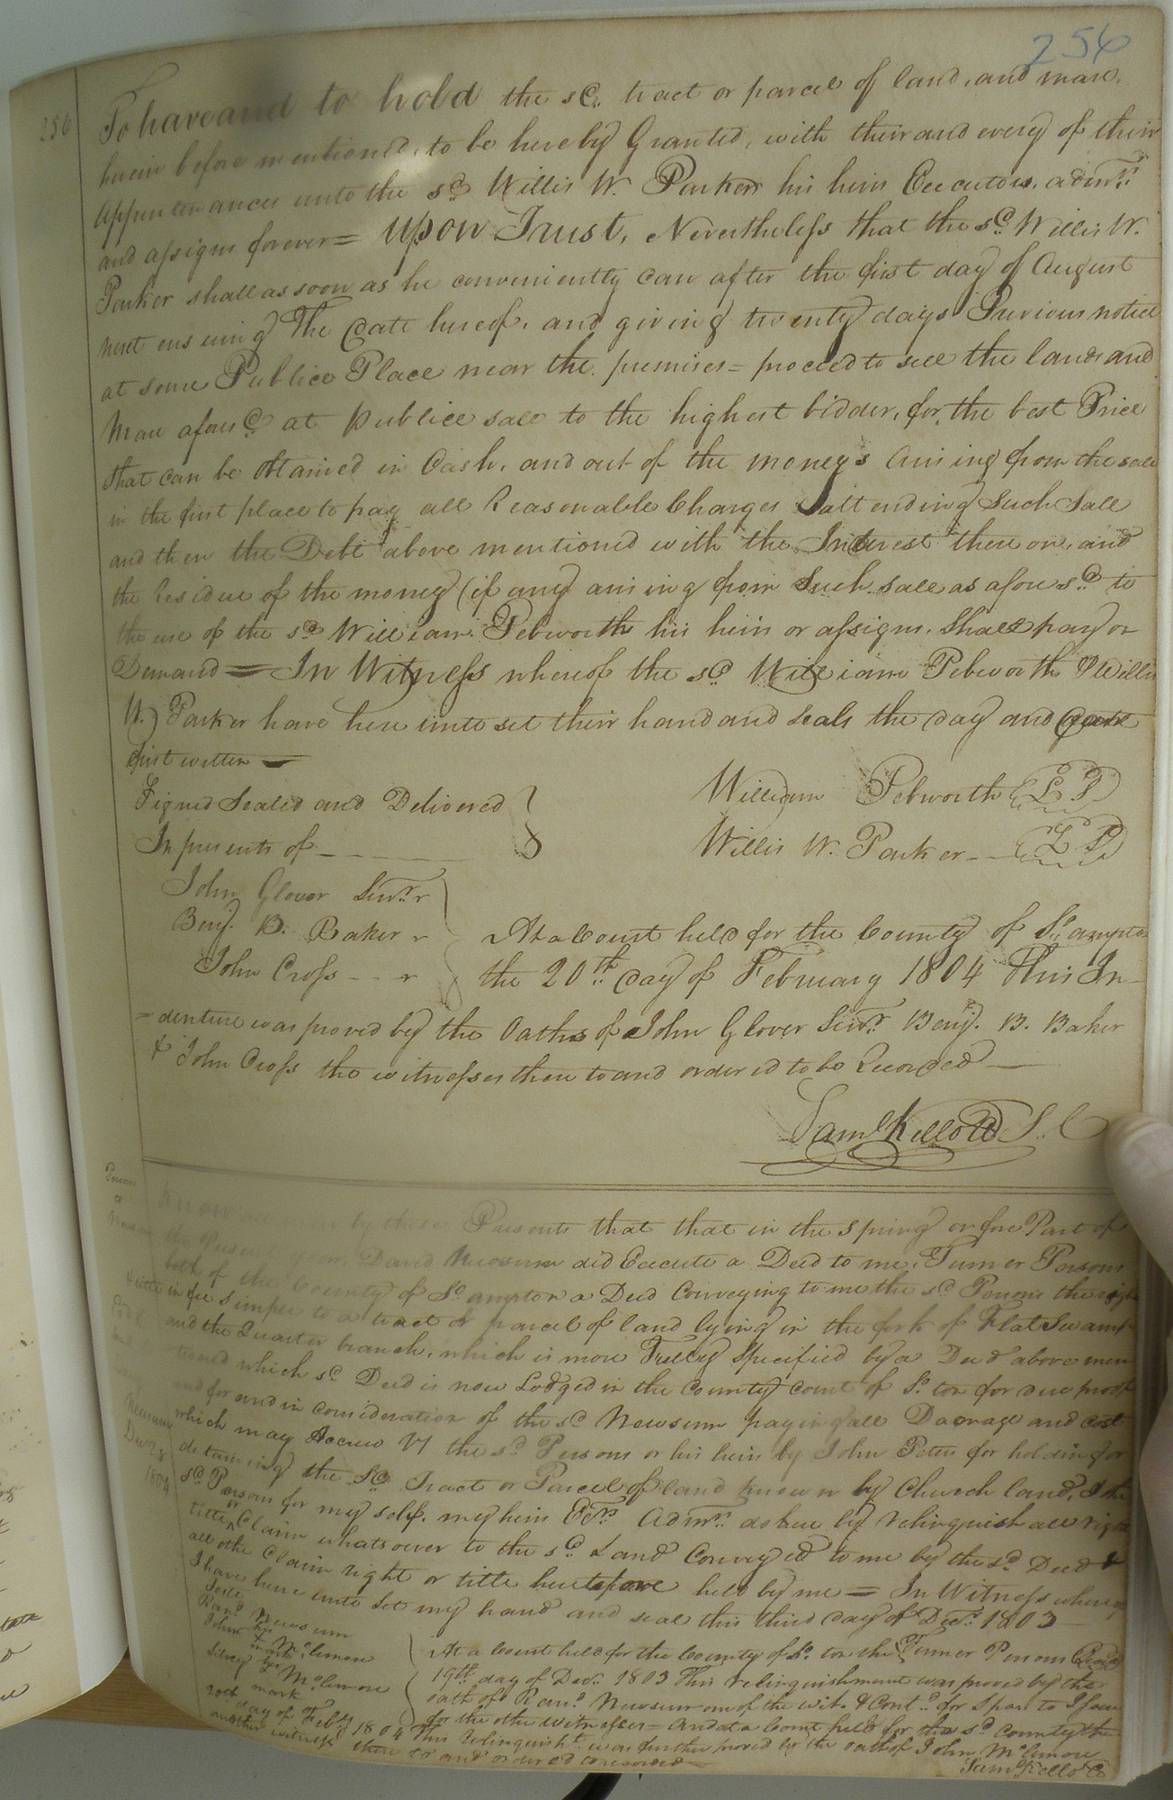 256
256
To have and to hold the sd. tract or parcel of land, and mare,
herein before mentioned, to be hereby Granted, with their and every of their
Appurtenances unto the sd. Willis W. Parker his heirs Executors, admrs.
and assigns forever = Upon Trust, Nevertheless that the sd. Willis W.
Parker shall as soon as he conveniently can after the first day of August
next ensuing The date hereof, and giving twenty days Previous notice
at some Publice Place near the premises = proceed to sell the land and
Mare aforesd. at publice sale to the highest bidder, for the best Price
that can be Obtained in Cash, and out of the moneys arising from the sale
in the first place to pay all Reasonable Charges attending Such Sale
and then the Debt above mentioned with the Interest there on, and
the Residue of the money (if any) arising from Such sale as afore sd. to
the use of the sd. William Pebworth his heirs or assigns. Shall pay on
Demand = In Witness whereof the sd. William Pebworth & Willis
W. Parker have here unto set their hand and seals the day and date
first written
Signed Sealed and Delivered
In presents of
William Pebworth LS
Willis W. Parker LS
John Glover Senr.
Benj. B. Baker
John Cross
At a Court held for the County of So. ampton
the 20th. day of February 1804 This In-
=denture was proved by the Oaths of John Glover Senr. Benj. B. Baker
& John Cross the witnesses there to and ordered to be Recorded
Saml Kello D S. C
Persons
to
Newsum
Know all men by these Presents that that in the Spring or fore Part of
David Newsum did Execute a Deed to me, Turner Persons
both of the County of So. ampton a Deed Conveying to me the sd. Persons the right
title in fee Simple to a tract or parcel of land lying in the fork of Flat Swamp
and the Quarter branch, which is more Fully Specified by a Deed above men
tioned which sd. Deed is now Lodged in the County Court of So. ton for due proof
and for and in consideration of the sd. Newsum paying all Damage and cost
which may Accrue Vs the sd. Persons or his heirs by John Peter for holding or
detaining the sd. Tract or Parcel of land known by Church land, I the
sd. Persons for my self, my heirs Exrs. Admrs. do here by relinquish all right
title or Claim whatsoever to the sd. Land Conveyed to me by the sd. Deed &
all othe Claim right or title heretofore held by me = In Witness whereof
I have here unto Set my hand and seal this third day of Decr. 1803
Newsum
Dec. 29
1804
Teste
Rand Newsum
John his mark McLemore
mark McLemore
Turner Persons Seal
At a Court held for the County of So. ton the
19th. day of Decr. 1803 This relinquishment was proved by the
oath of Rand. Newsum one of the wit. & Contd. for
for the other witnesses = And at a Court held for the sd. County the
20th day of Feby 1804 This relinquisht. was further proved by the oath of John McLemore
another witness there to and ordered to record
Saml Kello C